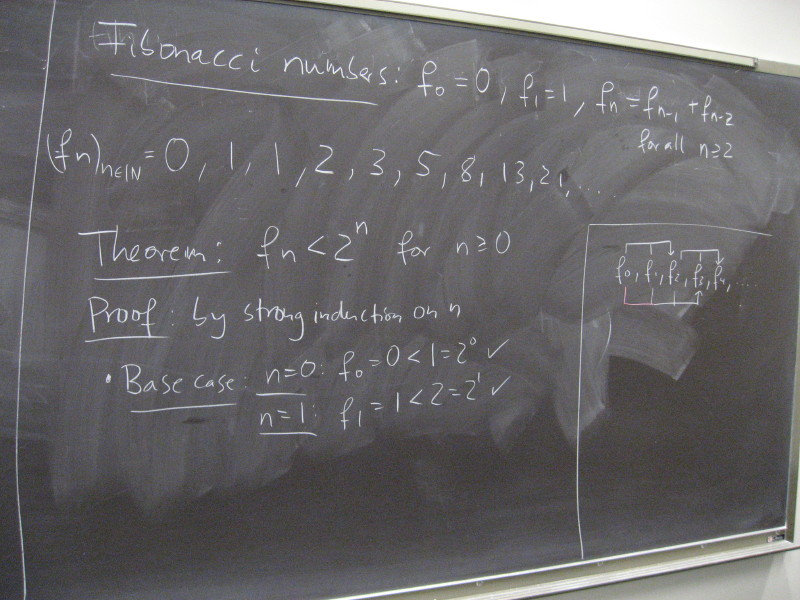 Fibonacci numbers: f₀ = 0, f₁ = 1, fₙ = fₙ₋₁ + fₙ₋₂
for all n ≥ 2
(fₙ)ₙ∈ℕ = 0, 1, 1, 2, 3, 5, 8, 13, 21, ...
Theorem: fₙ < 2ⁿ for n ≥ 0
f₀, f₁, f₂, f₃, f₄, ...
Proof: by strong induction on n
• Base case: n=0: f₀ = 0 < 1 = 2⁰ ✓
n=1: f₁ = 1 < 2 = 2¹ ✓